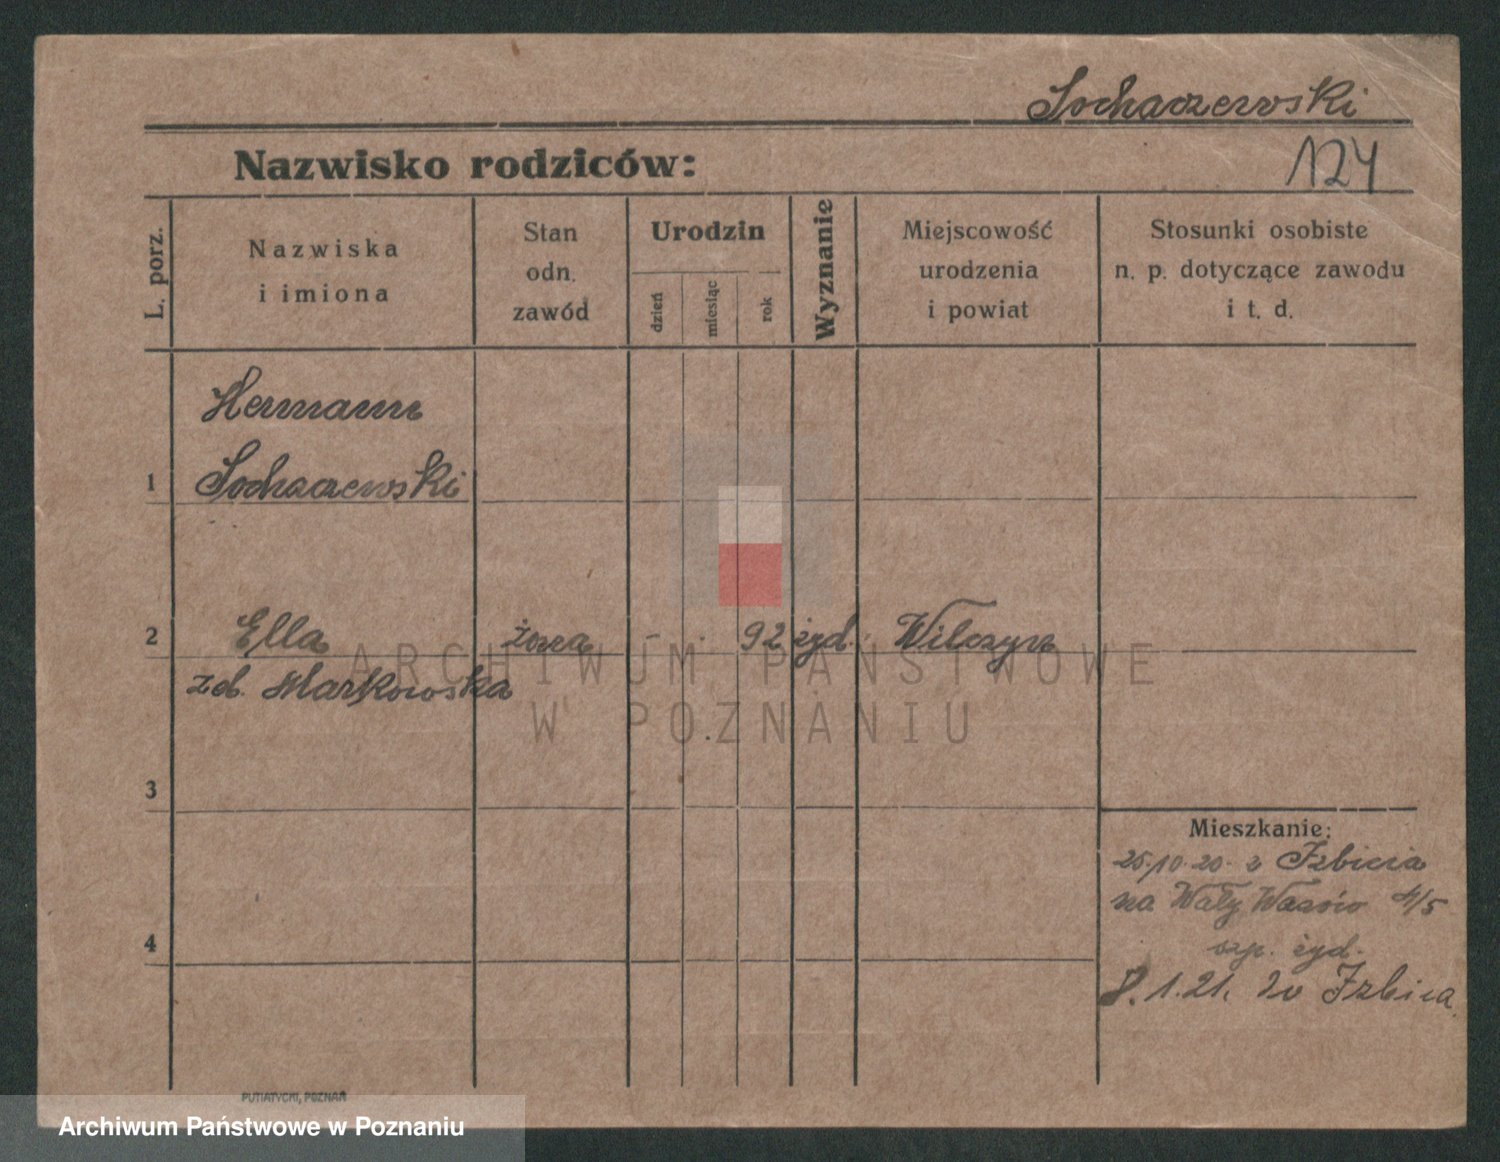 Sochaczewski
124
Nazwisko rodziców:
L. porz.
Nazwiska
i imiona
Stan
odn.
zawód
Urodzin
dzień
miesiąc
rok
Wyznanie
Miejscowość
urodzenia
i powiat
Stosunki osobiste
n. p. dotyczące zawodu
i t. d.
Hermann
1 Sochaczewski
2 Ella żona - . 92 żyd. Wilczyn
zd. Markowska
3
4
Mieszkanie:
25/10.20. z Izbicia
na Wały Wazów 4/5
szp. żyd.
8.1.21. do Izbica
PUTIATYCKI, POZNAŃ
ARCHIWUM PAŃSTWOWE
W POZNANIU
Archiwum Państwowe w Poznaniu